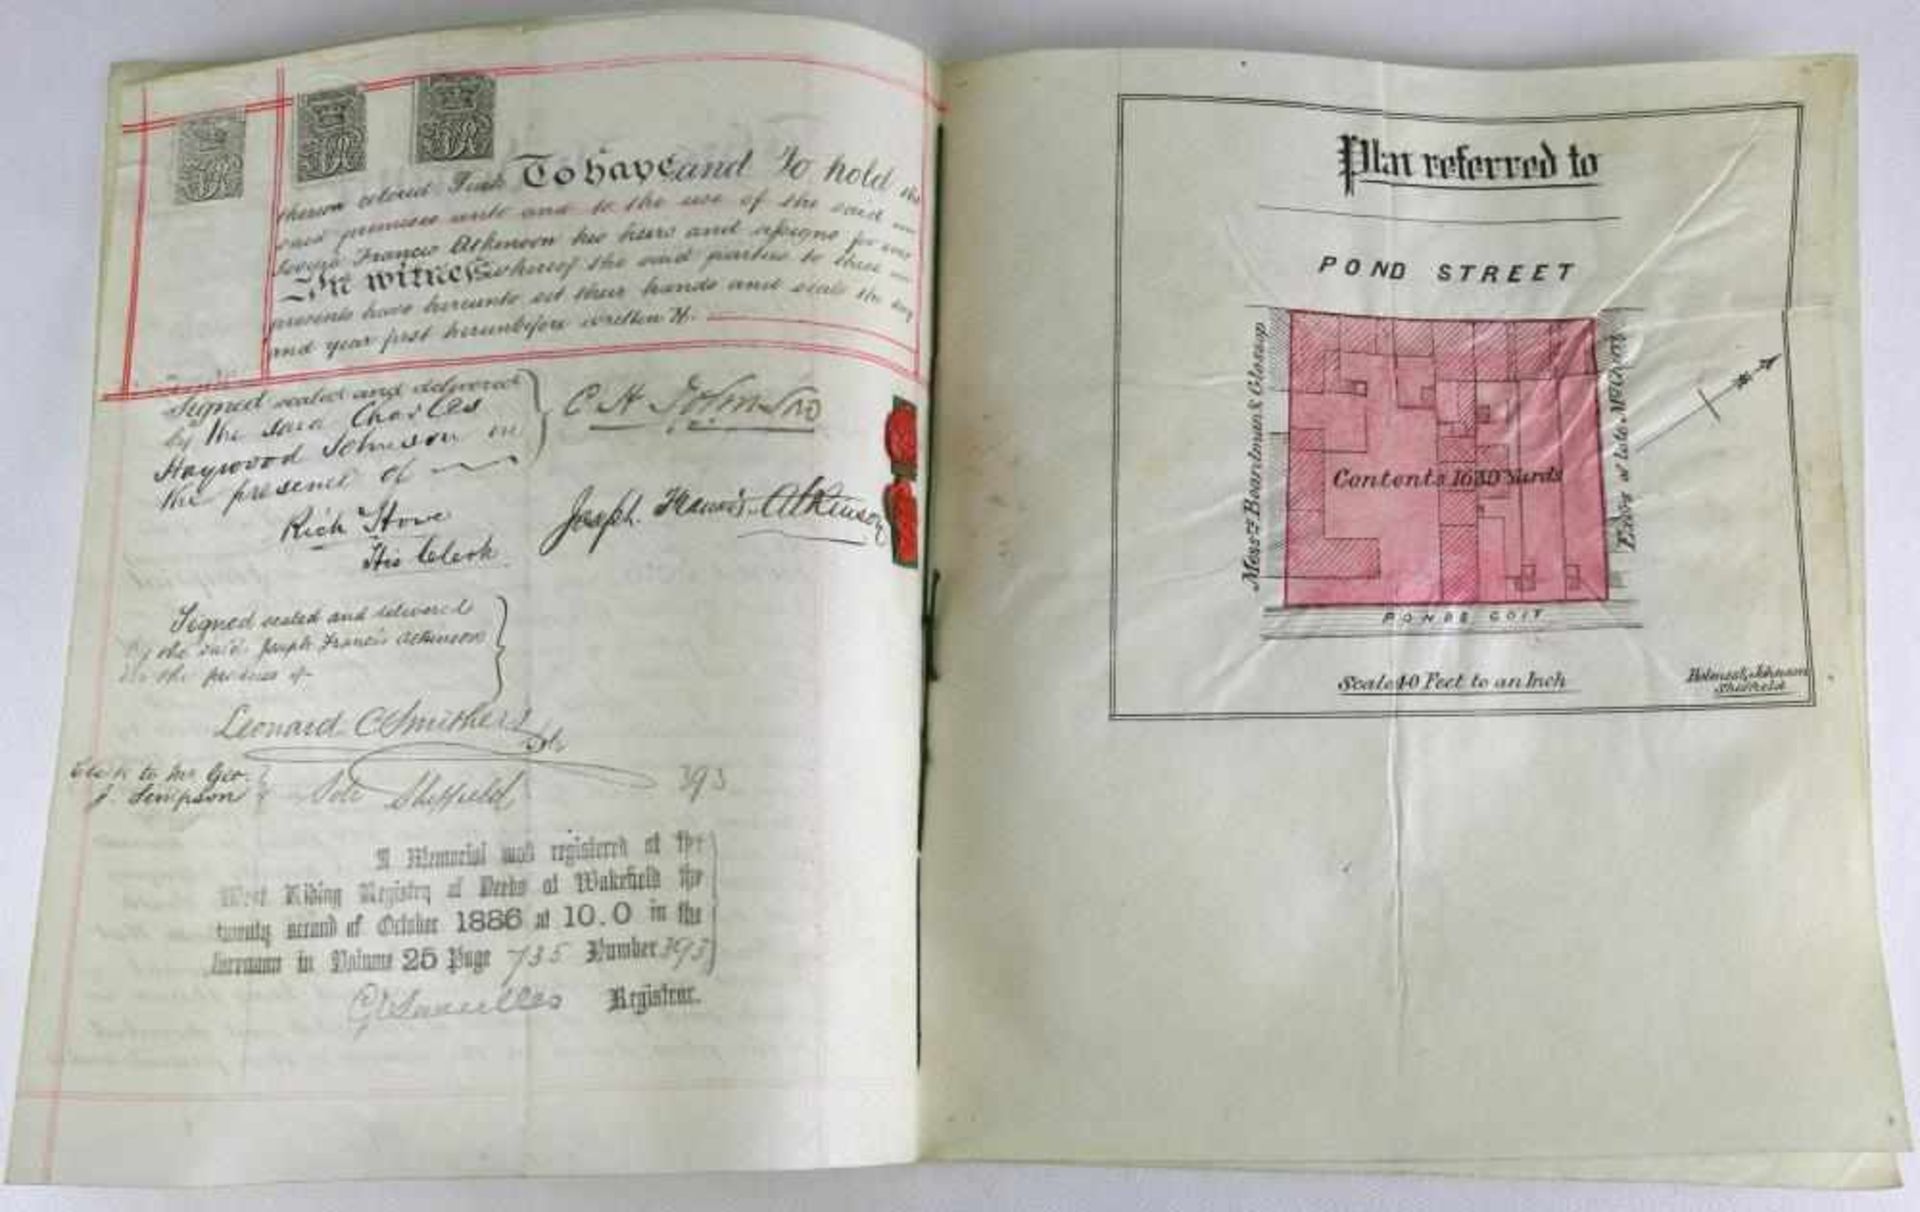 thereon colored Pink To have and To hold the
said premises unto and to the use of the said
Joseph Francis Atkinson his heirs and assigns for ever
In witness whereof the said parties to these
presents have hereunto set their hands and seals the day
and year first hereinbefore written
Signed sealed and delivered
by the said Charles
Haywood Johnson in
the presence of
C H Johnson
Rich Howe
His Clerk
Joseph Francis Atkinson
Signed sealed and delivered
by the said Joseph Francis Atkinson
in the presence of
Leonard C Smithers
Clerk to Mr Geo.
Simpson
Solr Sheffield
393
A Memorial was registered at the
West Riding Registry of Deeds at Wakefield the
twenty second of October 1886 at 10.0 in the
forenoon in Volume 25 Page 735 Number 393
Registrar.
Plan referred to
POND STREET
Messrs Boardman & Glossop
Contents 1630 Yards
Exors of late Mr
PONDS GOIT
Scale 40 Feet to an Inch
Johnson
Sheffield